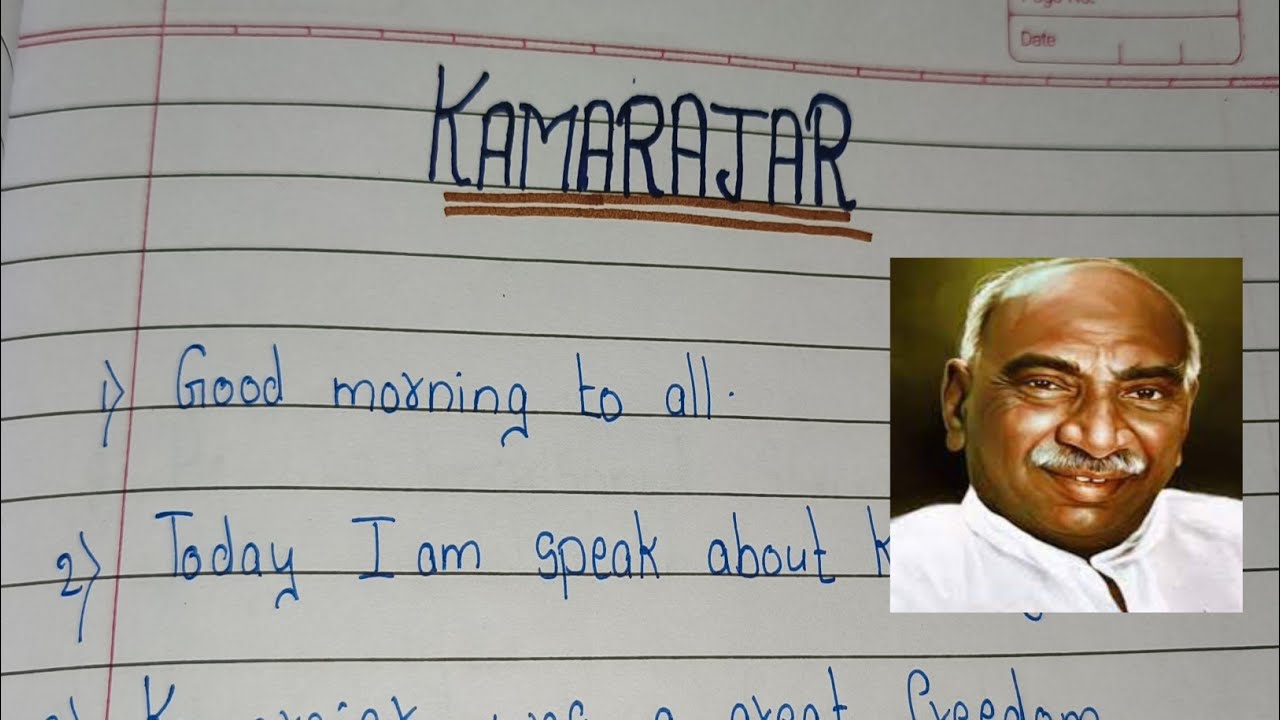 Page No.
Date
KAMARAJAR
1) Good morning to all.
2) Today I am speak about
was a great freedom